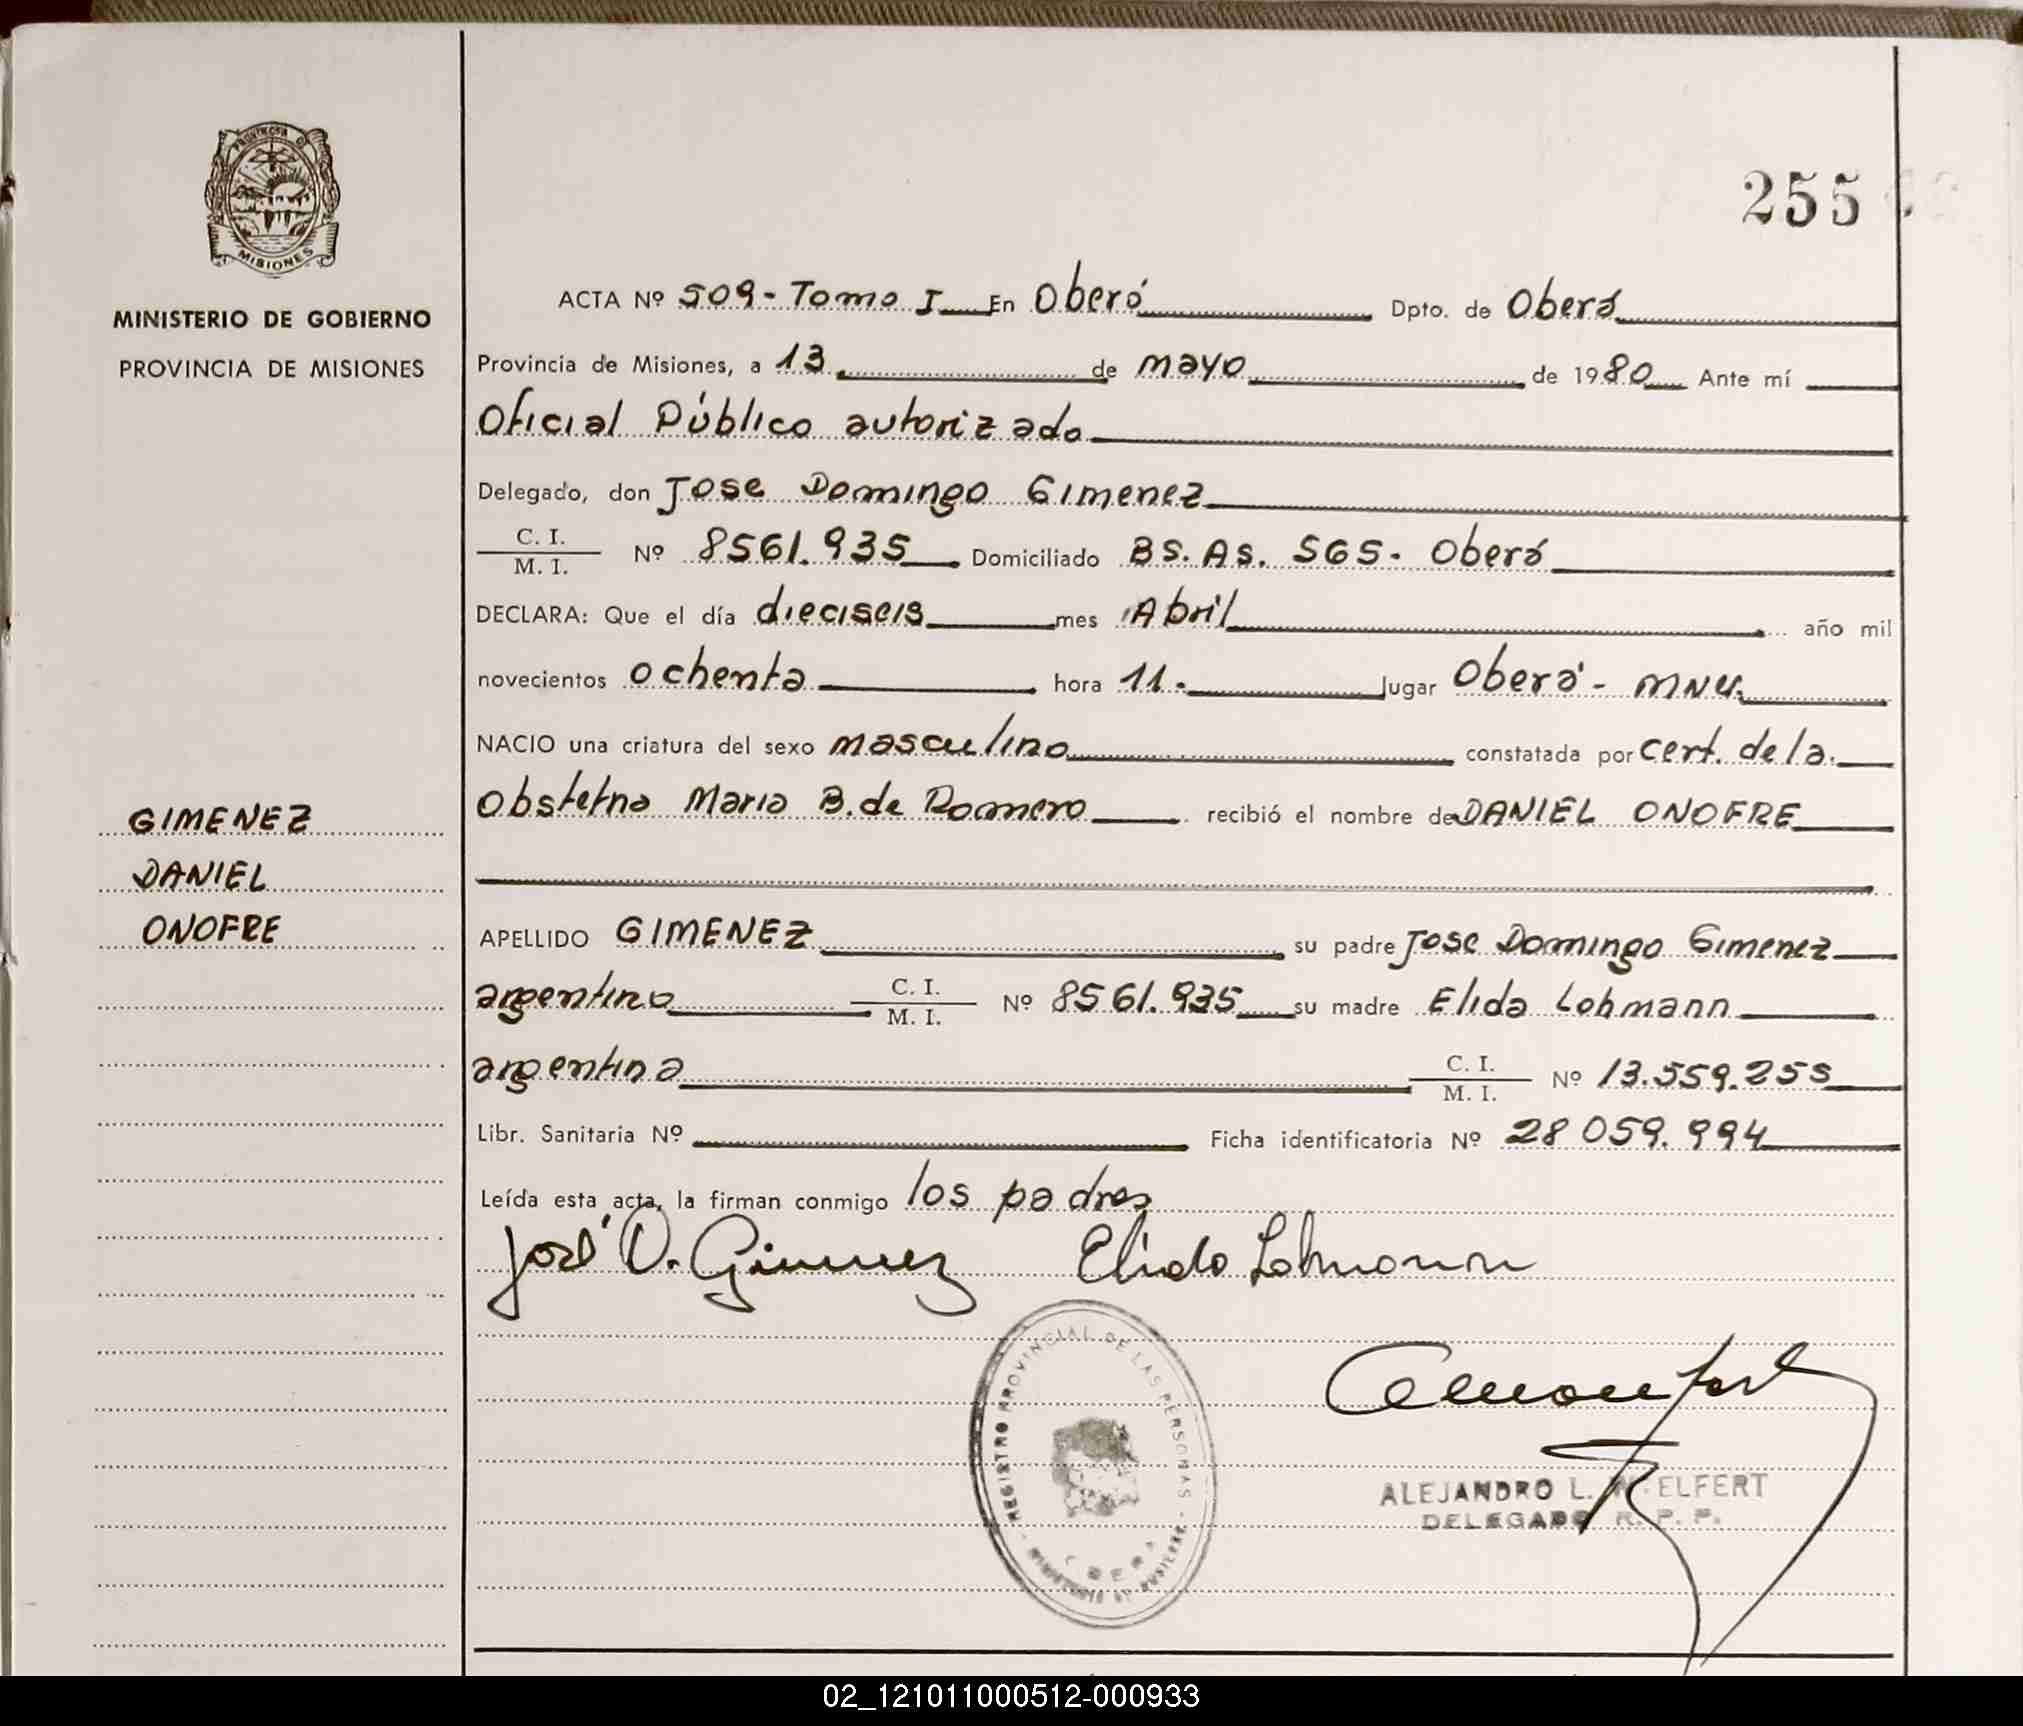 255
PROVINCIA DE
MISIONES
MINISTERIO DE GOBIERNO
PROVINCIA DE MISIONES
ACTA Nº 509 - Tomo I En Oberá Dpto. de Oberá
Provincia de Misiones, a 13 de mayo de 1980 Ante mí
Oficial Público autorizado
Delegado, don Jose Domingo Gimenez
C. I.
M. I. Nº 8561.935 Domiciliado BS. AS. 565 - Oberá
DECLARA: Que el día dieciseis mes Abril año mil
novecientos ochenta hora 11.- lugar Oberá - MNES.
NACIO una criatura del sexo masculino constatada por cert. de la
Obstetra Maria B. de Romero recibió el nombre de DANIEL ONOFRE
GIMENEZ
DANIEL
ONOFRE
APELLIDO GIMENEZ su padre Jose Domingo Gimenez
argentino C. I.
M. I. Nº 8561.935 su madre Elida Lohmann
argentina C. I.
M. I. Nº 13.559.255
Libr. Sanitaria Nº Ficha identificatoria Nº 28 059.994
Leída esta acta, la firman conmigo los padres
José D. Gimenez Elida Lohmann
REGISTRO PROVINCIAL DE LAS PERSONAS
OBERA
ALEJANDRO L. ELFERT
DELEGADO R. P. P.
02_121011000512-000933